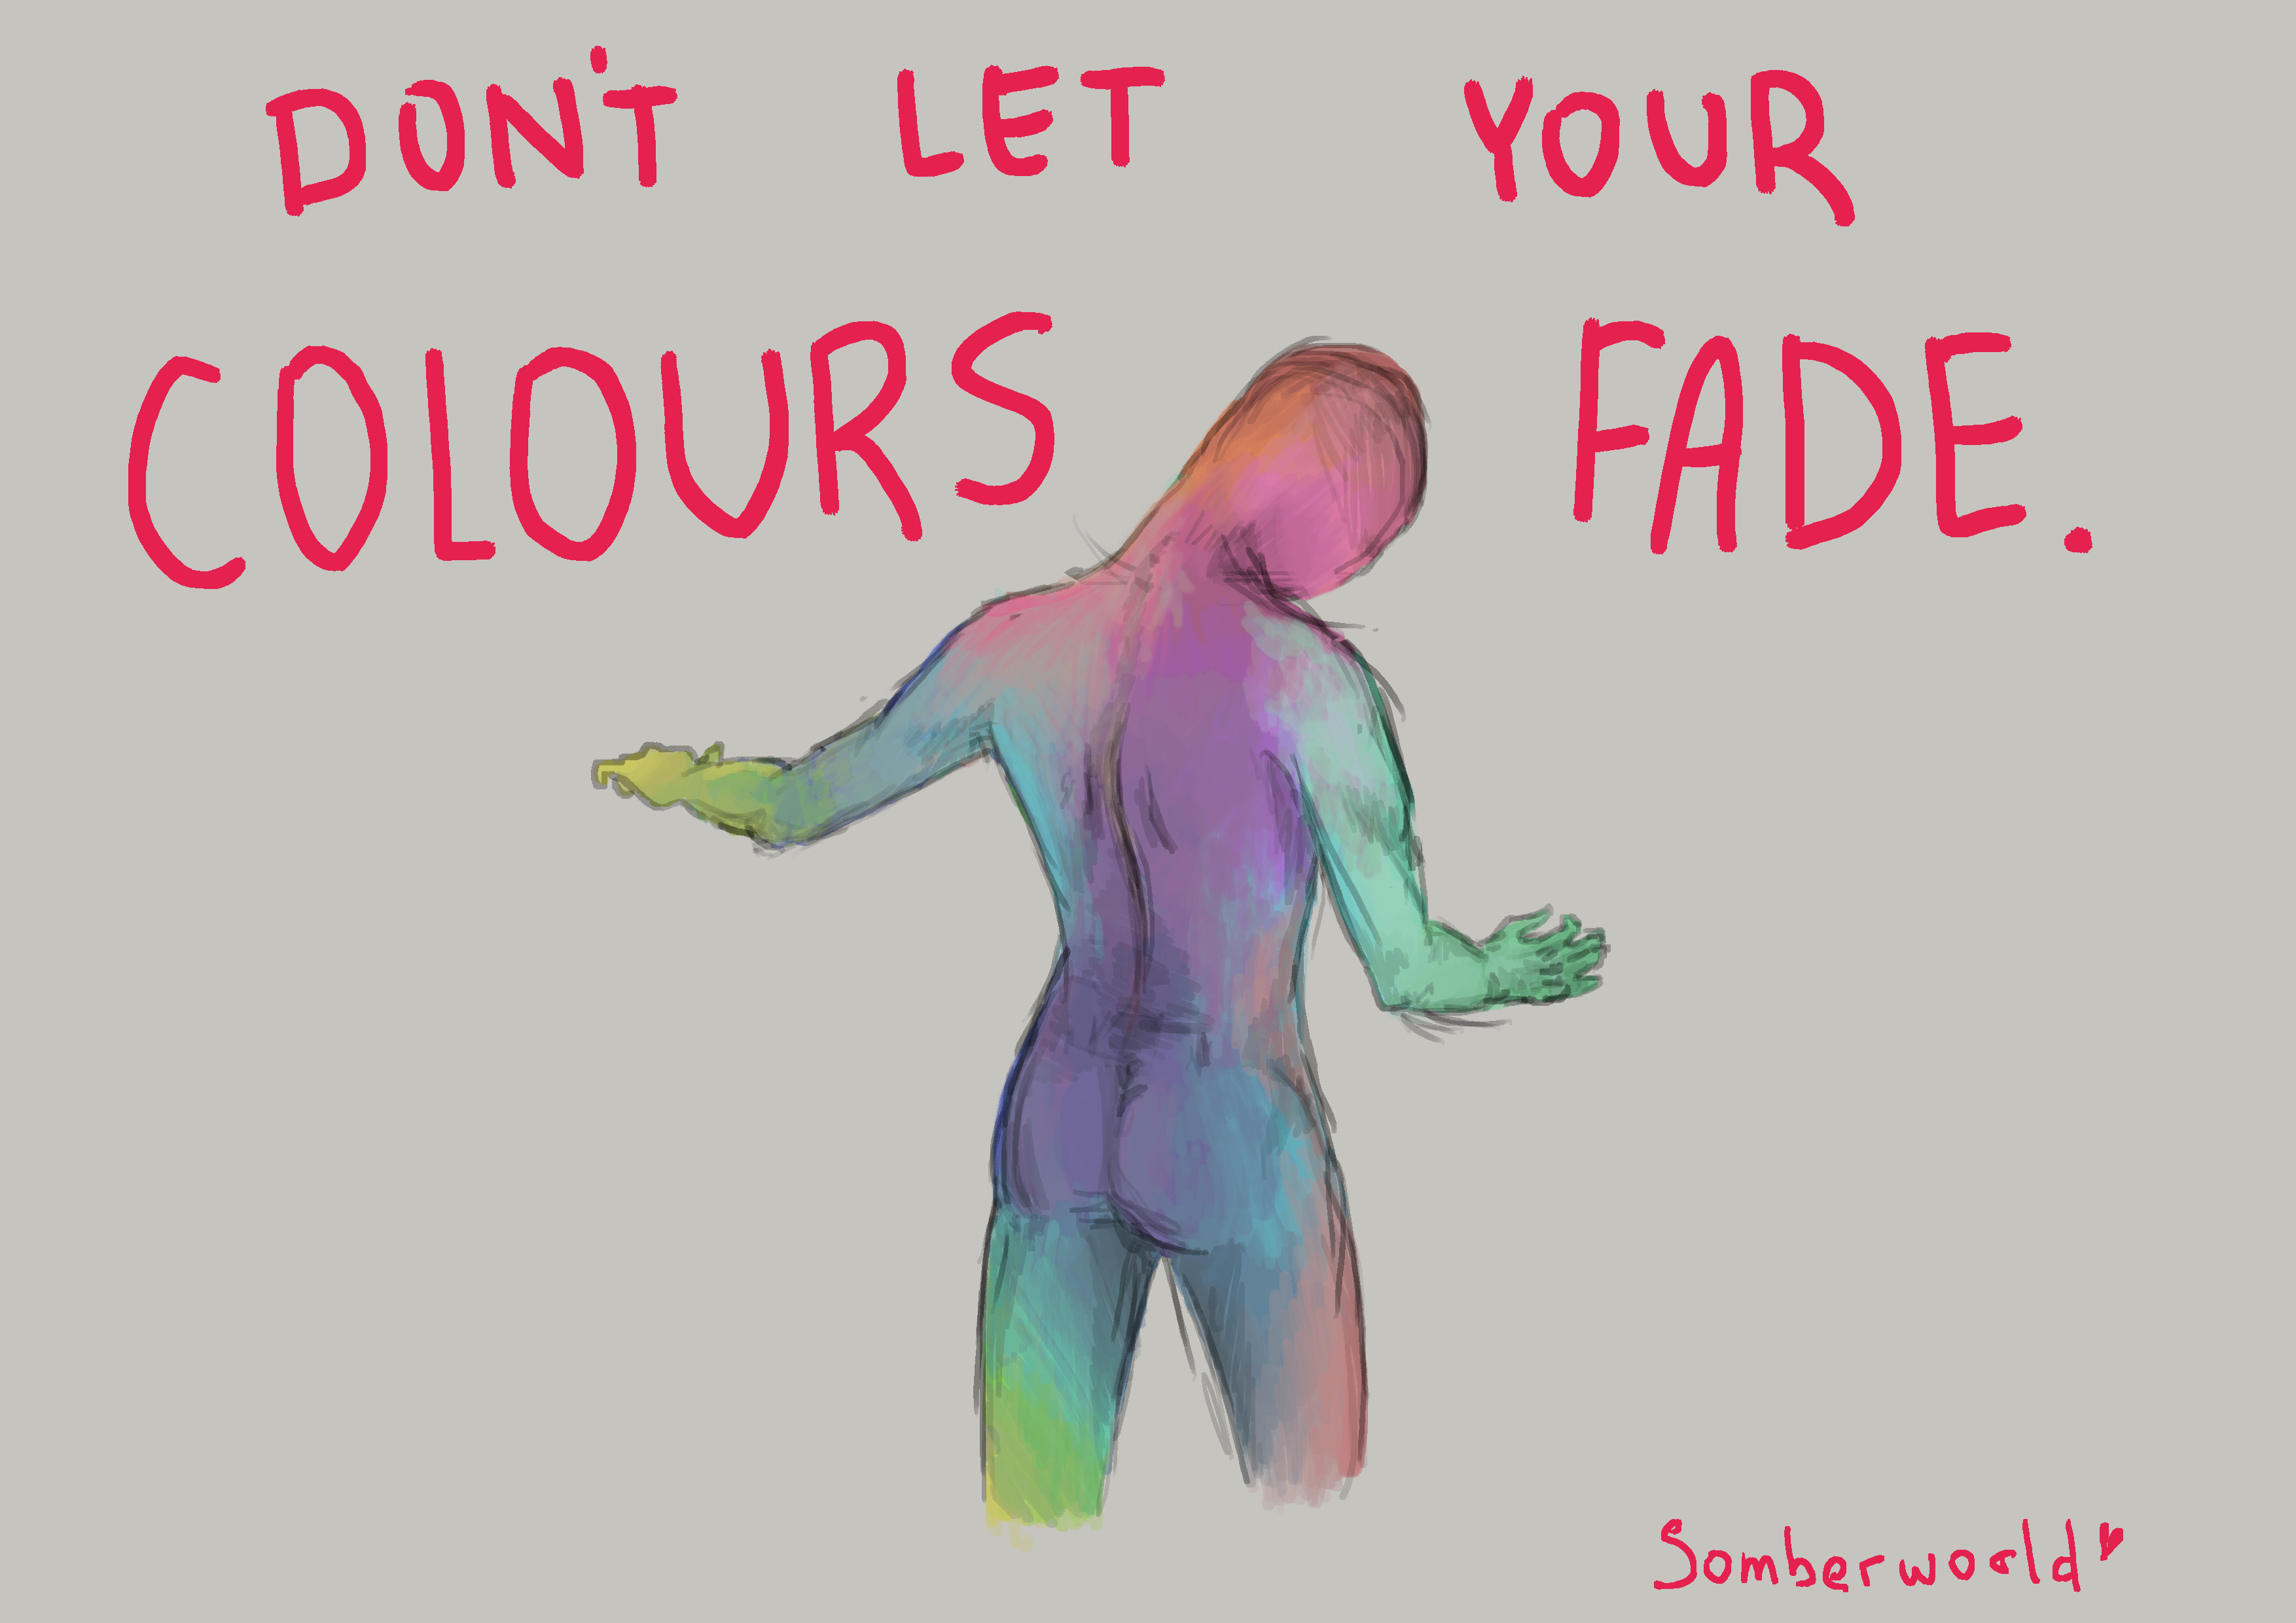 DON'T LET YOUR
COLOURS FADE.
Somberworld